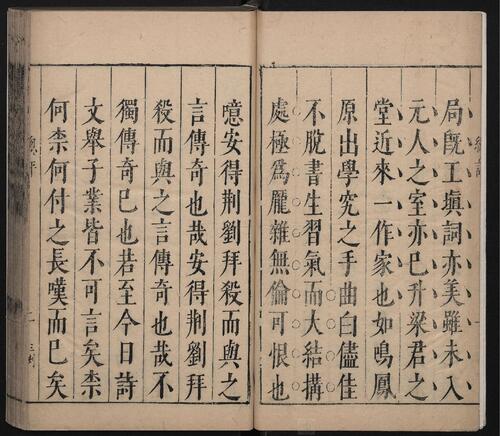 局旣工塡詞亦美雖未入
元人之室亦已升梁君之
堂近來一作家也如鳴鳳
原出學究之手曲白儘佳
不脫書生習氣而大結搆
處極爲厖雜無倫可恨也
噫安得荆劉拜殺而與之
言傳奇也哉安得荆劉拜
殺而與之言傳奇也哉不
獨傳奇已也若至今日詩
文舉子業皆不可言矣柰
何柰何付之長嘆而已矣
總評
二